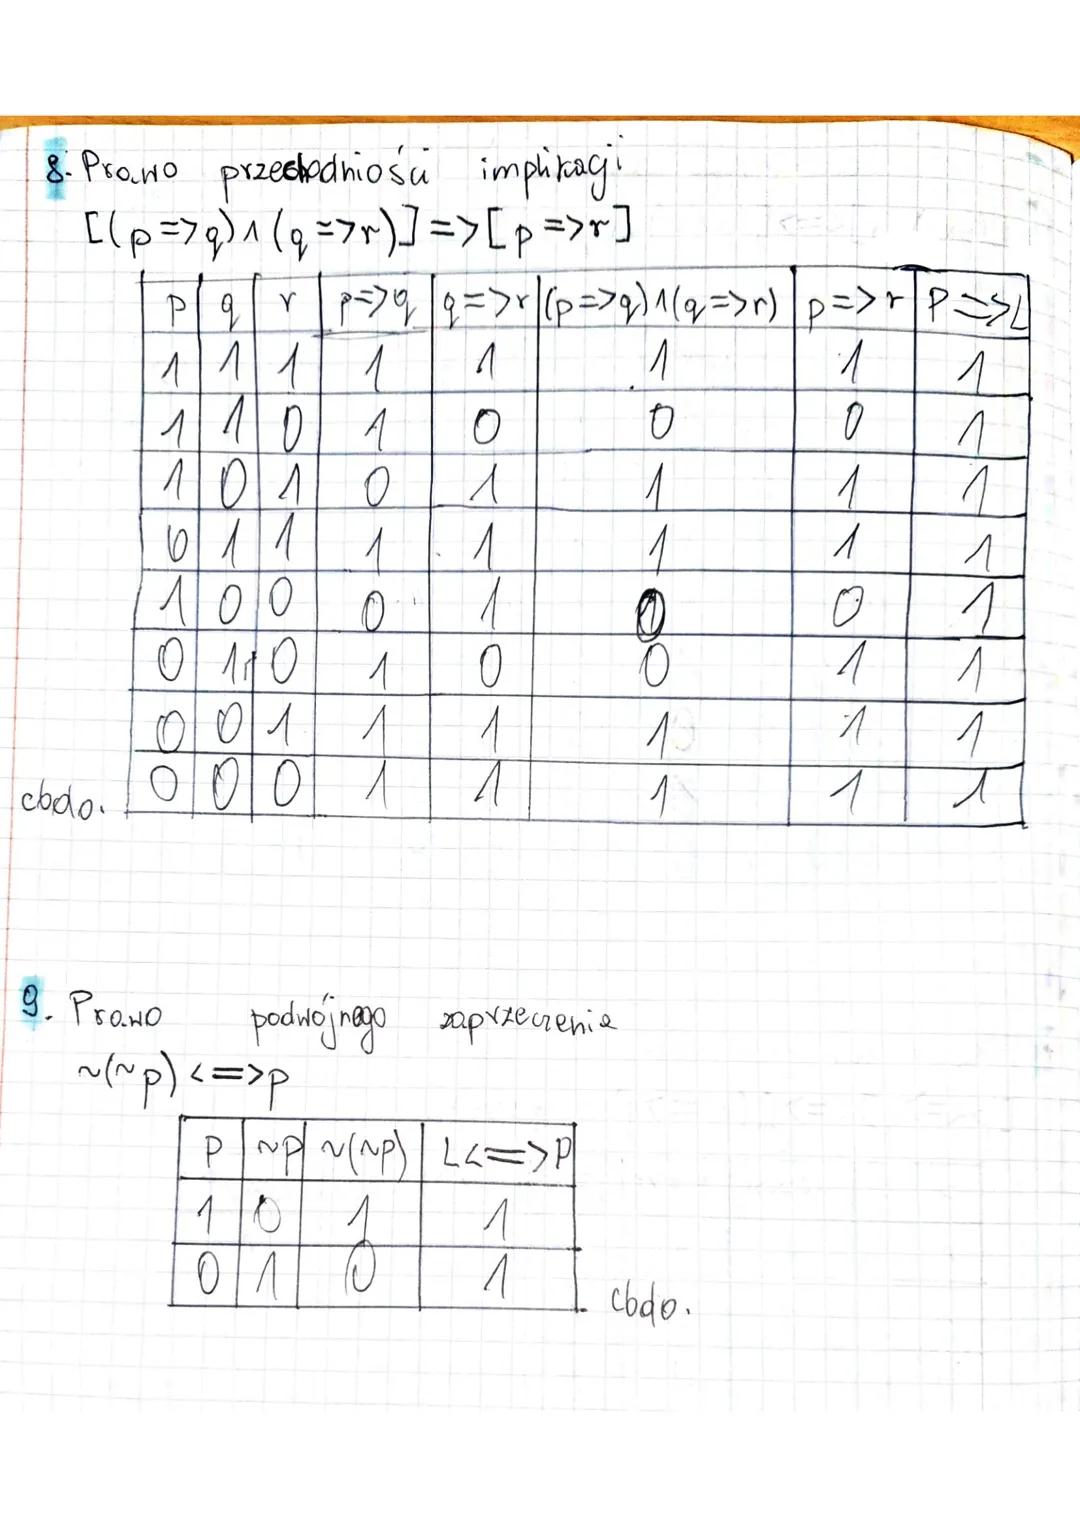 8. Prawo przechodniości implikacji
[(p=>q)∧(q=>r)]=>[p=>r]
p q r p=>q q=>r (p=>q)∧(q=>r) p=>r P=>L
1 1 1 1 1 1 1 1
1 1 0 1 0 0 0 1
1 0 1 0 1 1 1 1
0 1 1 1 1 1 1 1
1 0 0 0 1 0 0 1
0 1 0 1 0 0 1 1
0 0 1 1 1 1 1 1
0 0 0 1 1 1 1 1
cbdo.
9. Prawo podwójnego zaprzeczenia
~(~p) <=>p
p ~p ~(~p) L<=>P
1 0 1 1
0 1 0 1
cbdo.